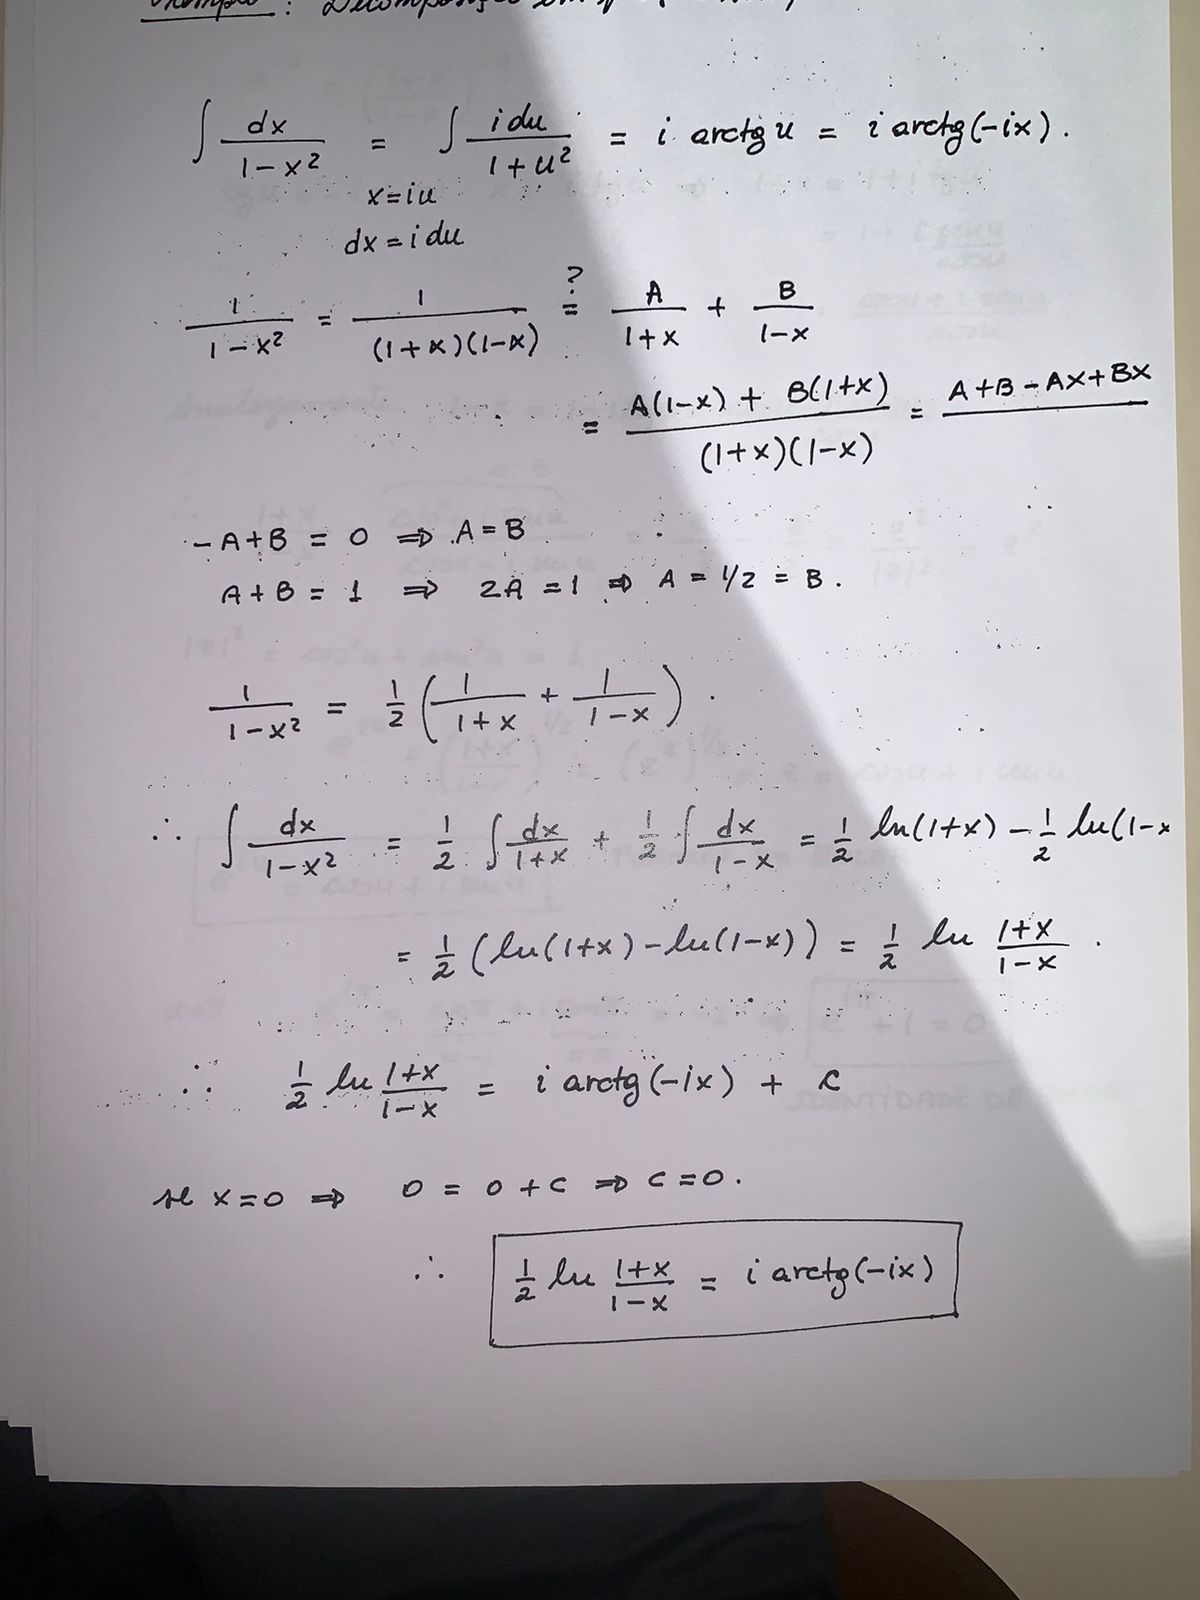 Exemplo: Decomposição em
∫ dx/(1-x²) = ∫ i du/(1+u²) = i arctg u = i arctg(-ix).
x=iu
dx = i du
1/(1-x²) = 1/((1+x)(1-x)) ?= A/(1+x) + B/(1-x)
= (A(1-x) + B(1+x))/((1+x)(1-x)) = A+B-Ax+Bx
-A+B = 0 ⇒ A=B
A+B = 1 ⇒ 2A=1 ⇒ A = 1/2 = B.
1/(1-x²) = 1/2 (1/(1+x) + 1/(1-x)).
∴ ∫ dx/(1-x²) = 1/2 ∫ dx/(1+x) + 1/2 ∫ dx/(1-x) = 1/2 ln(1+x) - 1/2 ln(1-x
= 1/2 (ln(1+x) - ln(1-x)) = 1/2 ln (1+x)/(1-x).
∴ 1/2 ln (1+x)/(1-x) = i arctg(-ix) + c
se x=0 ⇒ 0 = 0 + c ⇒ c=0.
∴ 1/2 ln (1+x)/(1-x) = i arctg(-ix)